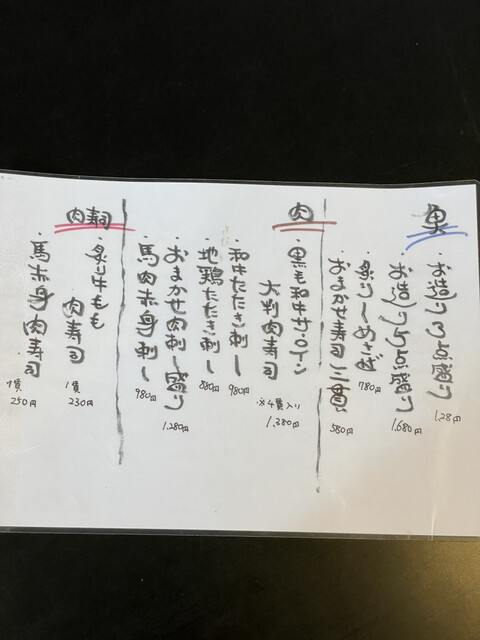 魚
・お造り3点盛り
1,28円
お造り5点盛り
1,680円
・炙りしめさば
780円
おまかせ寿司三貫
580円
肉
・黒毛和牛サーロイン
大判肉寿司
※4貫入り
1,380円
和牛たたき刺し
980円
地鶏たたき刺し
880円
おまかせ肉刺し盛り
1,280円
馬肉赤身刺し
980円
肉寿司
・炙り牛もも
肉寿司
1貫
230円
・馬赤身肉寿司
1貫
250円